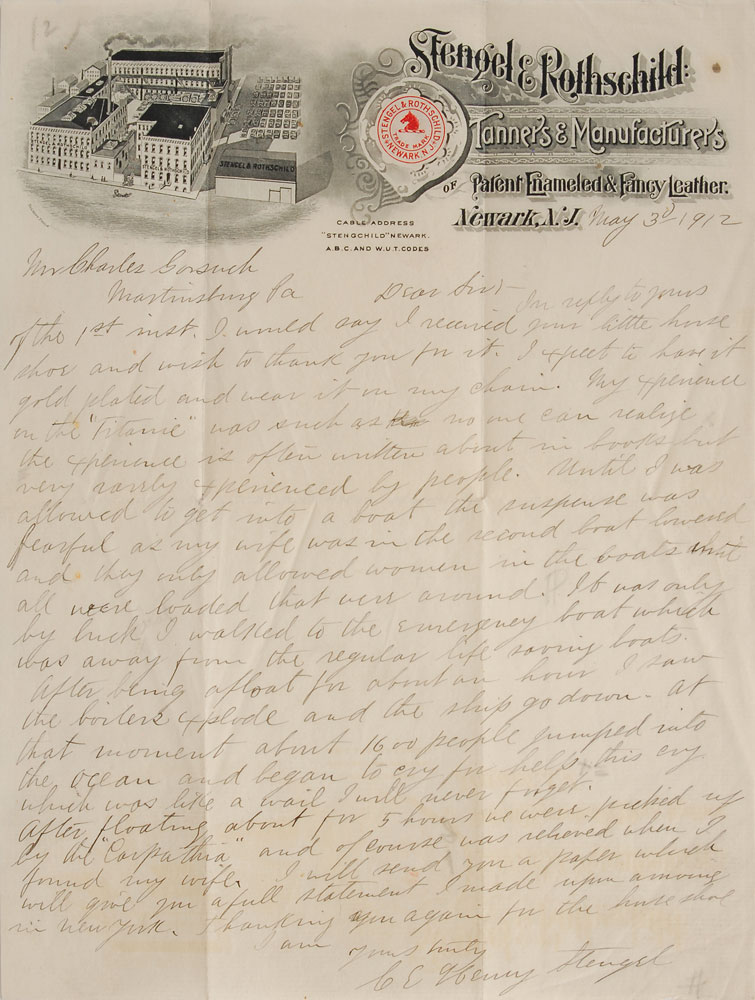 12
Stengel & Rothschild:
Tanners & Manufacturers
OF Patent Enameled & Fancy Leather.
STENGEL & ROTHSCHILD
TRADE MARK
NEWARK N.J.
STENGEL & ROTHSCHILD
STENGEL & ROTHSCHILD
CABLE ADDRESS
"STENGCHILD" NEWARK.
A.B.C. AND W.U.T. CODES
Newark, N.J. May 3d 1912
Mr Charles Gorsuch
Martinsburg Pa Dear Sir:- In reply to yours
of the 1st inst. I would say I received your little horse
shoe and wish to thank you for it. I xpect to have it
gold plated and wear it on my chain. My xperience
on the "Titanic" was such as no one can realize
the xperience is often written about in books but
very rarely xperienced by people. Until I was
allowed to get into a boat the suspense was
fearful as my wife was in the second boat lowered
and they only allowed women in the boats until
all were loaded that were around. It was only
by luck I walked to the Emergency boat which
was away from the regular life saving boats.
After being afloat for about an hour I saw
the boilers xplode and the ship go down. At
that moment about 1600 people jumped into
the ocean and began to cry for help, this cry
which was like a wail I will never forget.
After floating about for 5 hours we were picked up
by the "Carpathia" and of course was relieved when I
found my wife. I will send you a paper which
will give you a full statement I made upon arriving
in New York. Thanking you again for the horse shoe
I am yours truly
C E Henry Stengel